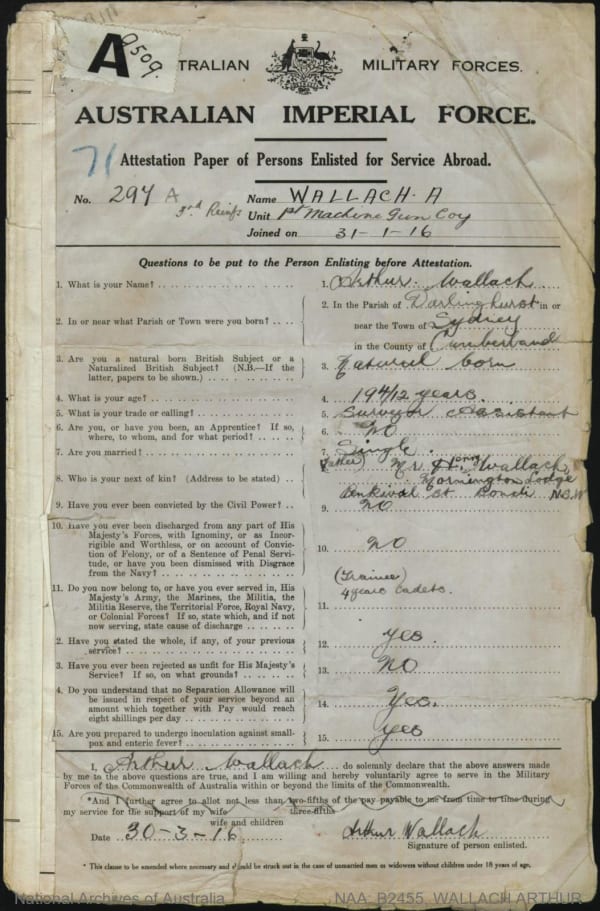 A 9509.
TRALIAN MILITARY FORCES.
AUSTRALIAN IMPERIAL FORCE.
71 Attestation Paper of Persons Enlisted for Service Abroad.
No. 297 A Name WALLACH. A
3rd Reinfs Unit 1st Machine Gun Coy
Joined on 31-1-16
Questions to be put to the Person Enlisting before Attestation.
1. What is your Name? 1. Arthur Wallach
2. In or near what Parish or Town were you born? 2. In the Parish of Darlinghurst in or
near the Town of Sydney
in the County of Cumberland
3. Are you a natural born British Subject or a
Naturalized British Subject? (N.B.—If the
latter, papers to be shown.) 3. Natural born
4. What is your age? 4. 19 4/12 years.
5. What is your trade or calling? 5. Surveyor assistant
6. Are you, or have you been, an Apprentice? If so,
where, to whom, and for what period? 6. NO
7. Are you married? 7. Single.
8. Who is your next of kin? (Address to be stated) 8. (Father) Mr. Henry Wallach
Mornington Lodge
Penkivil St Bondi N.S.W
9. Have you ever been convicted by the Civil Power? 9. NO
10. Have you ever been discharged from any part of His
Majesty's Forces, with Ignominy, or as Incor-
rigible and Worthless, or on account of Convic-
tion of Felony, or of a Sentence of Penal Servi-
tude, or have you been dismissed with Disgrace
from the Navy? 10. NO
11. Do you now belong to, or have you ever served in, His
Majesty's Army, the Marines, the Militia, the
Militia Reserve, the Territorial Force, Royal Navy,
or Colonial Forces? If so, state which, and if not
now serving, state cause of discharge 11. (Trainee)
4 years Cadets.
2. Have you stated the whole, if any, of your previous
service? 12. yes
3. Have you ever been rejected as unfit for His Majesty's
Service? If so, on what grounds? 13. NO
4. Do you understand that no Separation Allowance will
be issued in respect of your service beyond an
amount which together with Pay would reach
eight shillings per day 14. Yes.
15. Are you prepared to undergo inoculation against small-
pox and enteric fever? 15. yes
I, Arthur Wallach do solemnly declare that the above answers made
by me to the above questions are true, and I am willing and hereby voluntarily agree to serve in the Military
Forces of the Commonwealth of Australia within or beyond the limits of the Commonwealth.
*And I further agree to allot not less than two-fifths of the pay payable to me from time to time during
three-fifths
my service for the support of my wife
wife and children
Date 30-3-16 Arthur Wallach
Signature of person enlisted.
* This clause to be amended where necessary and should be struck out in the case of unmarried men or widowers without children under 18 years of age.
National Archives of Australia NAA: B2455, WALLACH ARTHUR